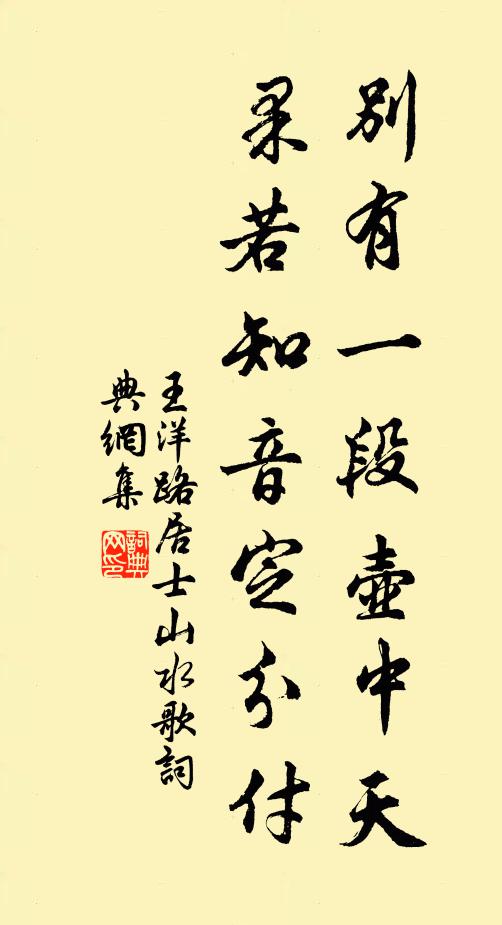 別有一段壺中天
果若知音定分付
王洋路居士山水歌詞
典網集
詞典
网印